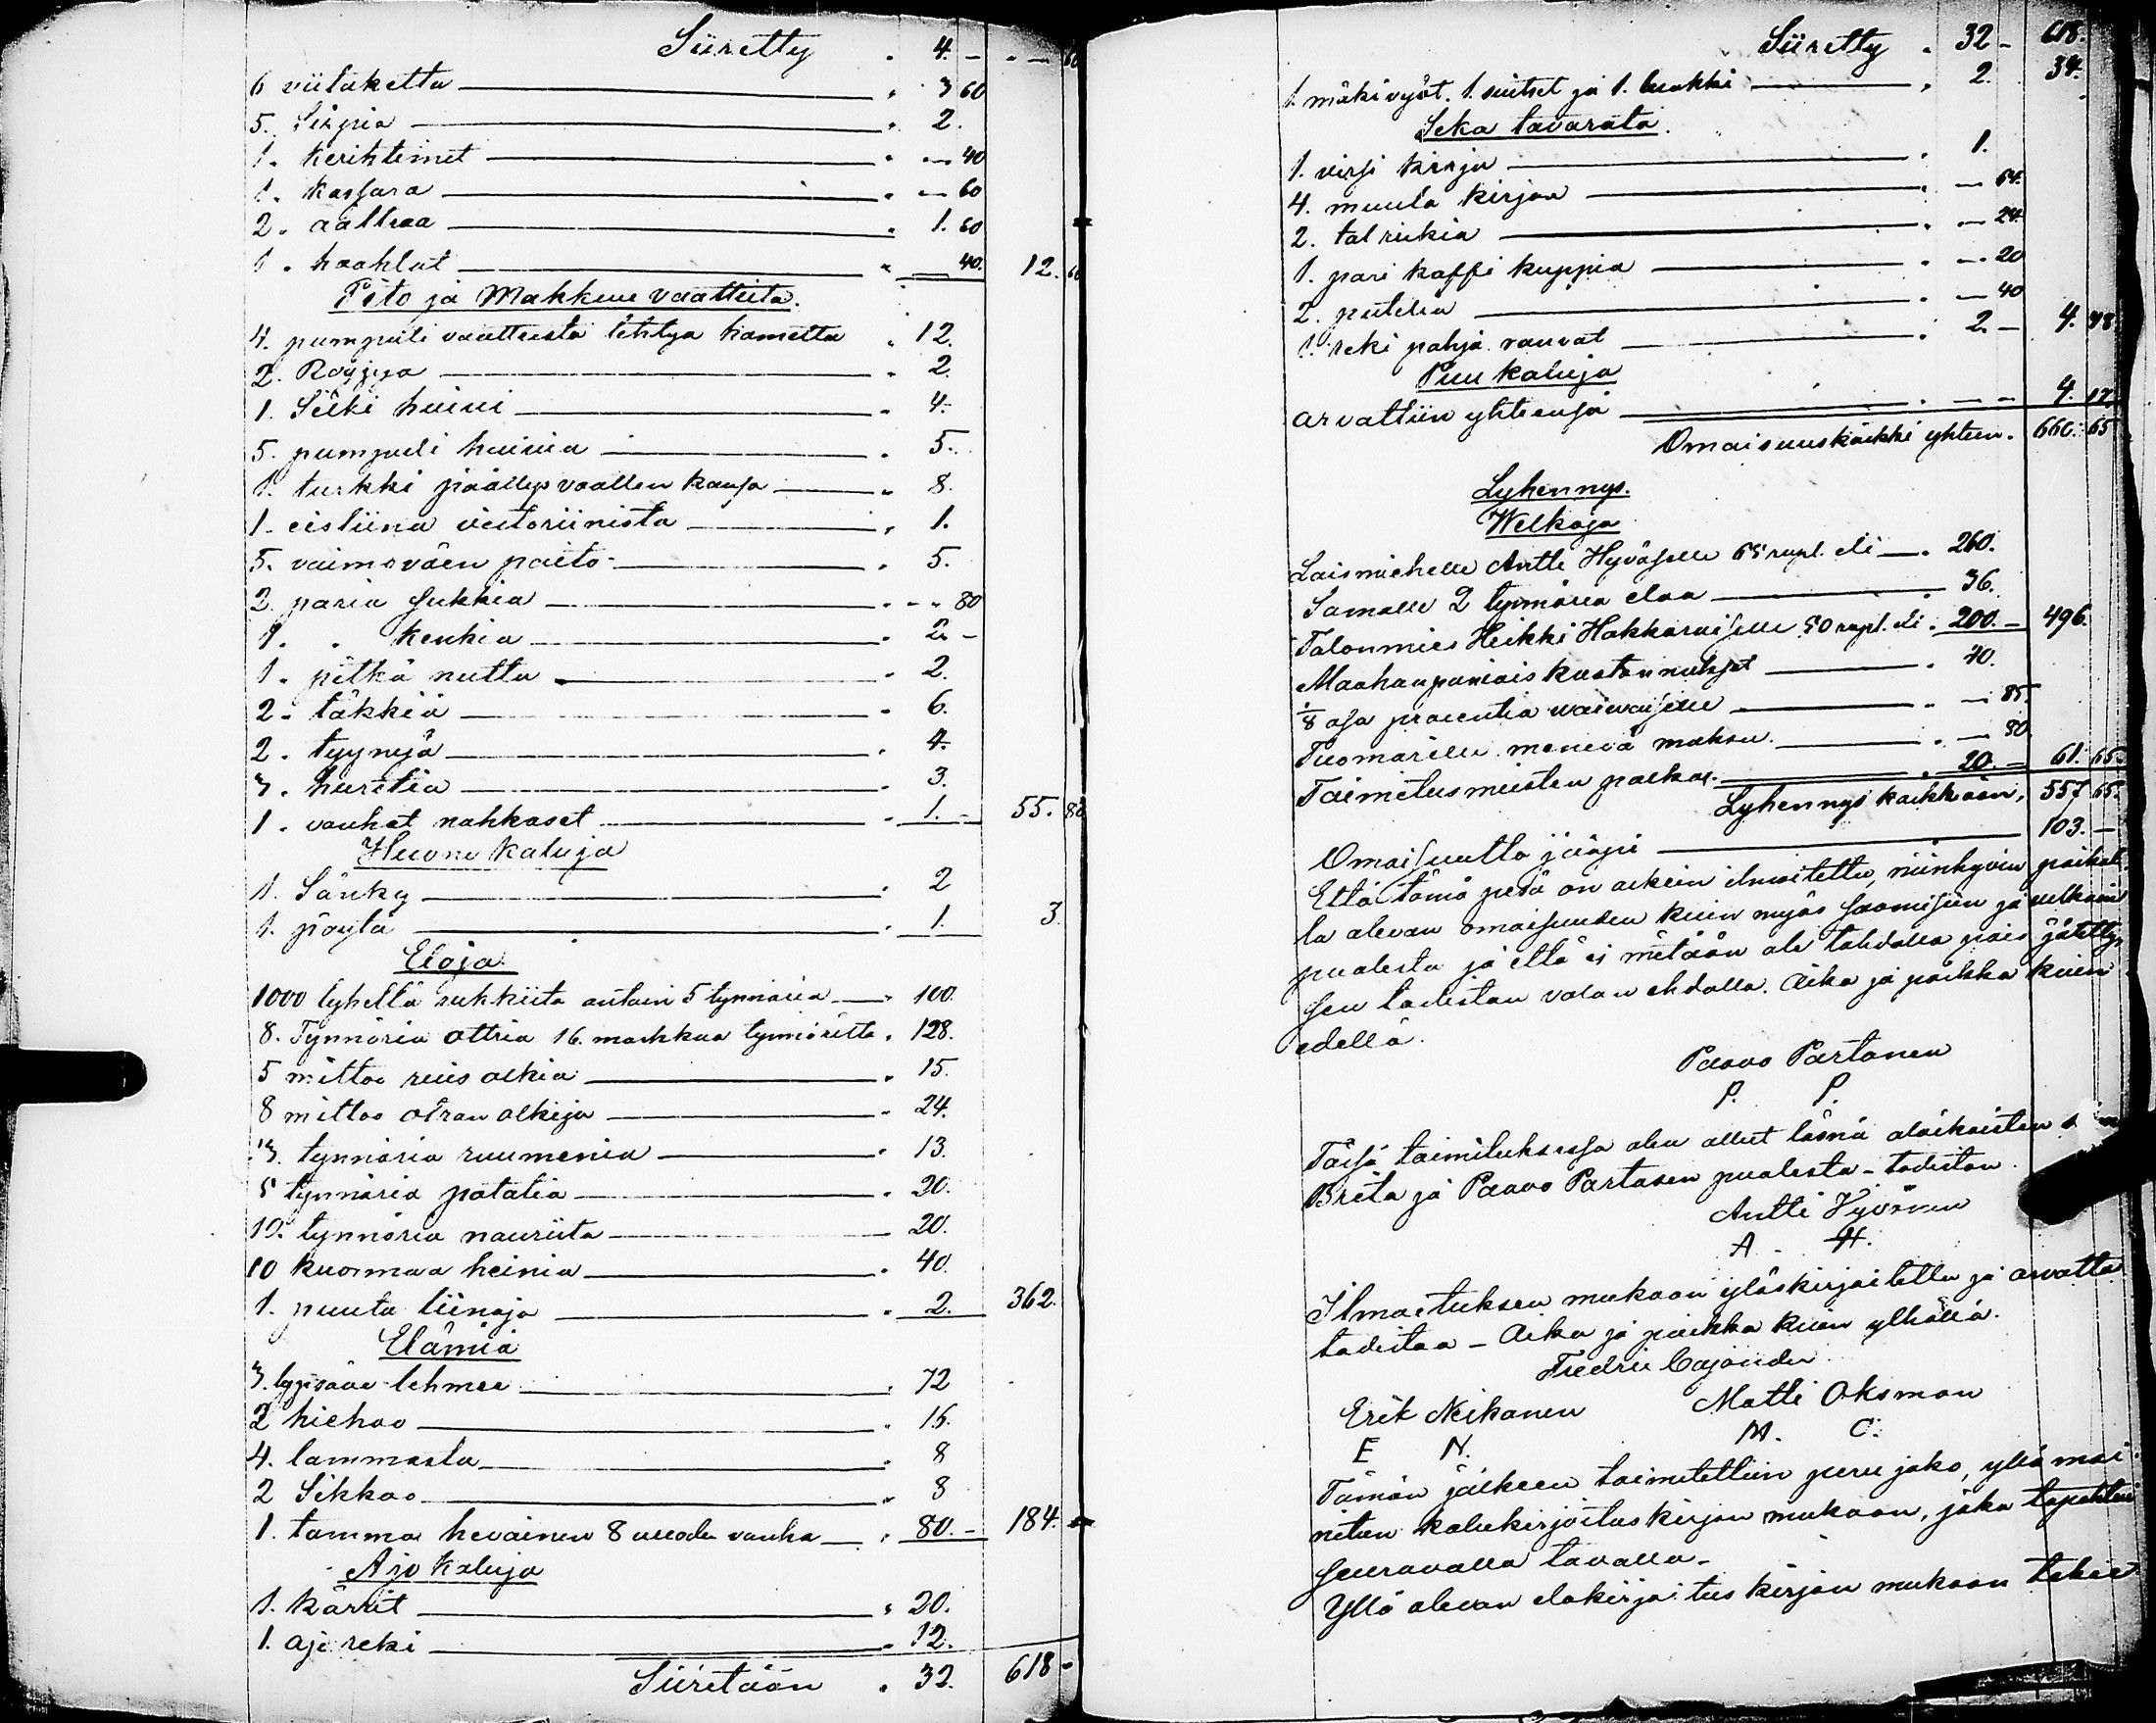 Siiretty " 4. – " — 60
6 viilaketta " 3 60
5. Sirpia " 2.
1. Kerihtimet " — 40
1. Kassara " — 60
2. aattraa " 1. 60
1. haahlat " 40. 12. 60
Pito ja Makkuu vaatteita.
4. pumpuli vaatteesta tehtyä hametta " 12.
2. Röijyä " 2.
1. Silki huivi " 4.
5. pumpuli huivia " 5.
1. turkki päällys vaatten kansa " 8.
1. eisliina victoriinista " 1.
5. vaimoväen paito " 5.
2. paria sukkia " – " 80
1. " kenkia " 2. –
1. pitkä nuttu " 2.
2. täkkiä " 6.
2. tyynyjä " 4.
3. hurstia " 3.
1. vanhat nahkaset " 1. – 55. 80
Huone kaluja
1. Sänky " 2
1. pöytä " 1. 3.
Eloja
1000 lyhettä rukkiita antain 5 tynnäriä " 100.
8. Tynnäria ottria 16. markkaa tynnäriltä " 128.
5 mittoo ruis olkia " 15.
8 mittoo otran olkija " 24.
13. tynnäria ruumenia " 13.
5 tynnäria potatia " 20.
10. tynnäria nauriita 20.
10 kuormaa heinia " 40.
1. puuta liinoja " 2. 362.
Elämiä
3. lypsävä lehmee " 72
2 hiehoo " 16.
4. lammasta " 8
2 Sikkoo " 8
1. tamma hevoinen 8 vuoden vanha " 80. – 184.
Ajo kaluja
1. Kärrit " 20.
1. ajo reki " 12.
Siiretään " 32. 618 –
Siiretty " 32 – 618.
1. mäkivyöt. 1. suitset ja 1. luokki " 2. 34.
Seka tavarata.
1. virsi kirja " 1.
4. muuta kirjaa " — 64.
2. talrikia " — 24.
1. pari kaffi kuppia " — 20
2. putelia " — 40
1. reki pohja rauvat " 2. – 4. 48.
Puu kaluja
arvattiin yhteensä " – – 4. 17
Omaisuus kaikki yhteen. 660. 65
Lyhennys.
Welkoja
Laismiehelle Antti Hyväselle 65 rupl. eli " 260.
Samalle 2 tynnäria eloa " 36.
Talonmies Heikki Hakkaraiselle 50 rupl. eli " 200. – 496.
Maahanpaniais kustannukset " 40.
1/8 osa procentia waivaiselle " — 85.
Tuomarille menevä maksu. " — 80
Toimitusmiesten palkat. " 20. – 61. 65.
Lyhennys kaikkiaan, 557. 65.
Omaisuutta jääpi 103. –
Että tämä pesä on oikein ilmoitettu, niinhyvin paikal
la olevan omaisuuden kuin myös saamisiin ja velkain
puolesta ja että ei mitään ole tahdolla pois jätetty,
sen todistan valan ehdolla. Aika ja paikka kuin
edellä.
Paavo Partanen
P. P.
Täsä toimituksessa olen ollut läsnä alaikaisten
Brita ja Paavo Partasen puolesta – todistan
Antti Hyvönen
A. H.
Ilmoituksen mukaan ylöskirjoitettu ja arvattu
todistaa – Aika ja paikka kuin ylhällä.
Fredric Cajander
Erik Neikanen Matti Oksman
E N. M. O.
Tämän jälkeen toimitettiin peru jako, yllä mai-
nitun kalukirjoitus kirjan mukaan, joka tapahtui
seuravalla tavalla.
Yllä olevan elokirjoitus kirjan mukaan tekee